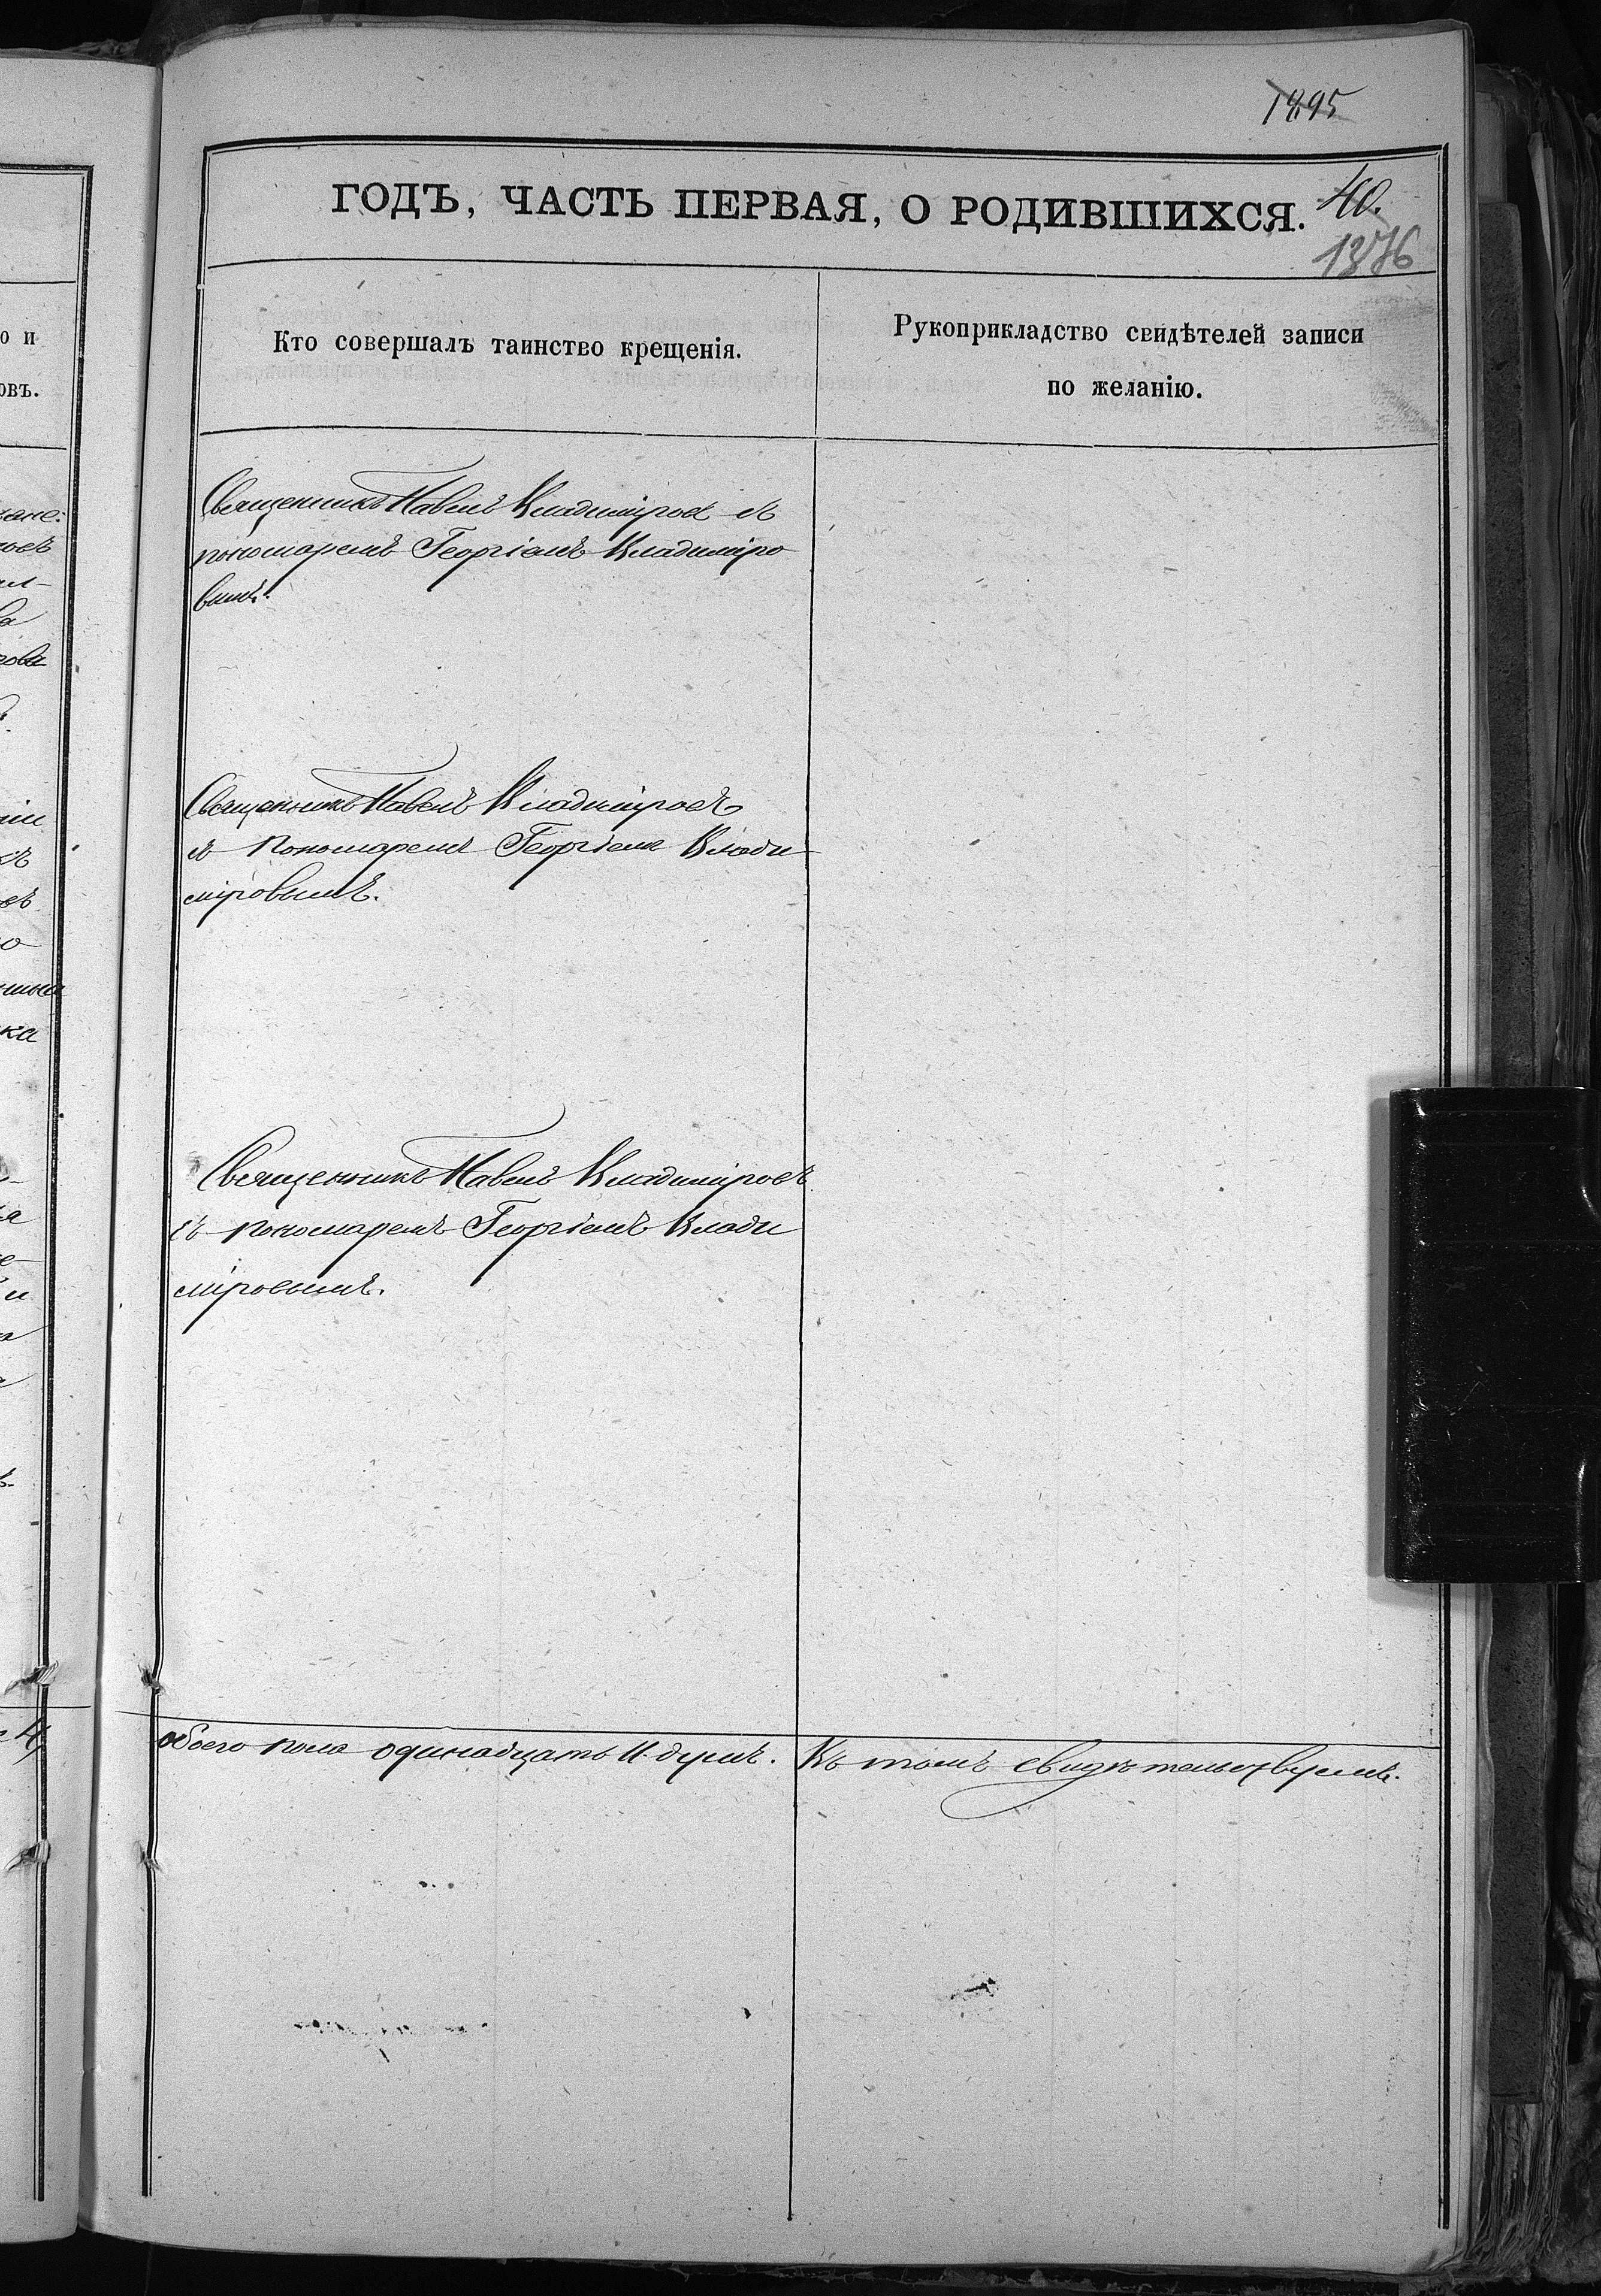 1895
ГОДЪ, ЧАСТЬ ПЕРВАЯ, О РОДИВШИХСЯ.
40.
1376
Кто совершалъ таинство крещенія.
Рукоприкладство свидѣтелей записи
по желанію.
Священникъ Павелъ Владиміровъ съ
пономаремъ Георгіемъ Владиміро
вымъ.
Священникъ Павелъ Владиміровъ
съ Пономаремъ Георгіемъ Влади
міровымъ.
Священникъ Павелъ Владиміровъ
съ пономаремъ Георгіемъ Влади
міровымъ.
обоего пола одинадцать 11 душъ.
Въ томъ свидѣтельствуемъ.
о и
овъ.
ка